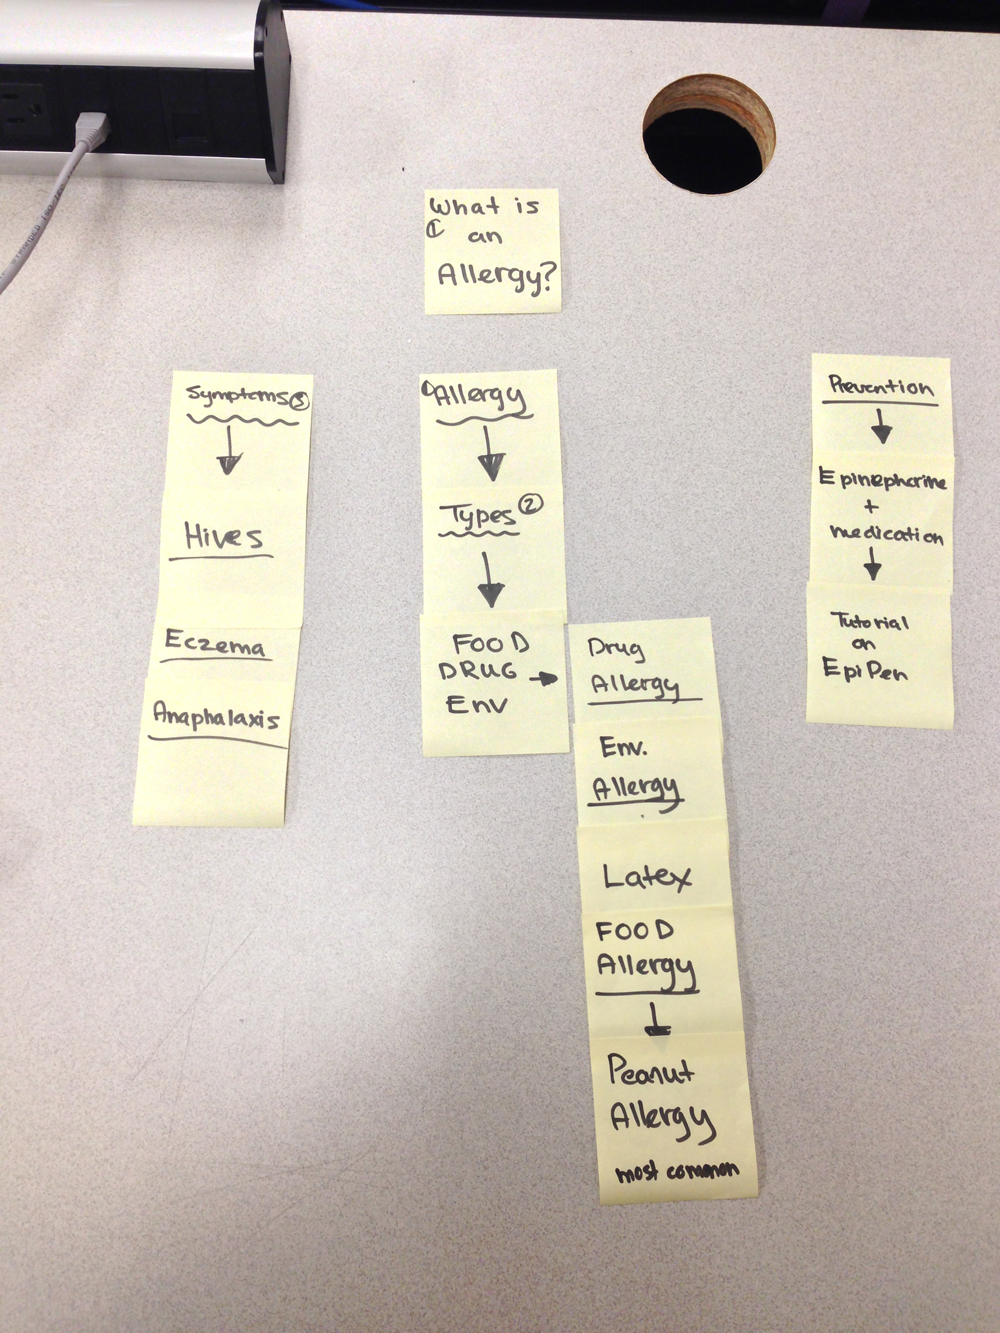 What is
① an
Allergy?
Symptoms③
Hives
Eczema
Anaphalaxis
Allergy
Types②
FOOD
DRUG
Env
Drug
Allergy
Env.
Allergy
Latex
FOOD
Allergy
Peanut
Allergy
most common
Prevention
Epinepharine
+
medication
Tutorial
on
EpiPen